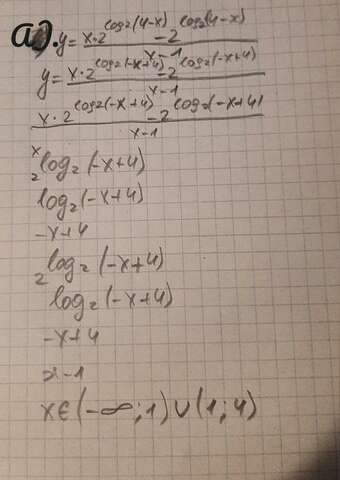 a). y = x·2^log₂(4-x) - 2^log₂(4-x) / x-1
y = x·2^log₂(-x+4) - 2^log₂(-x+4) / x-1
x·2^log₂(-x+4) - 2^log₂(-x+4) / x-1
x 2 log₂(-x+4)
log₂(-x+4)
-x+4
2 log₂(-x+4)
log₂(-x+4)
-x+4
x-1
x∈(-∞;1)∪(1;4)